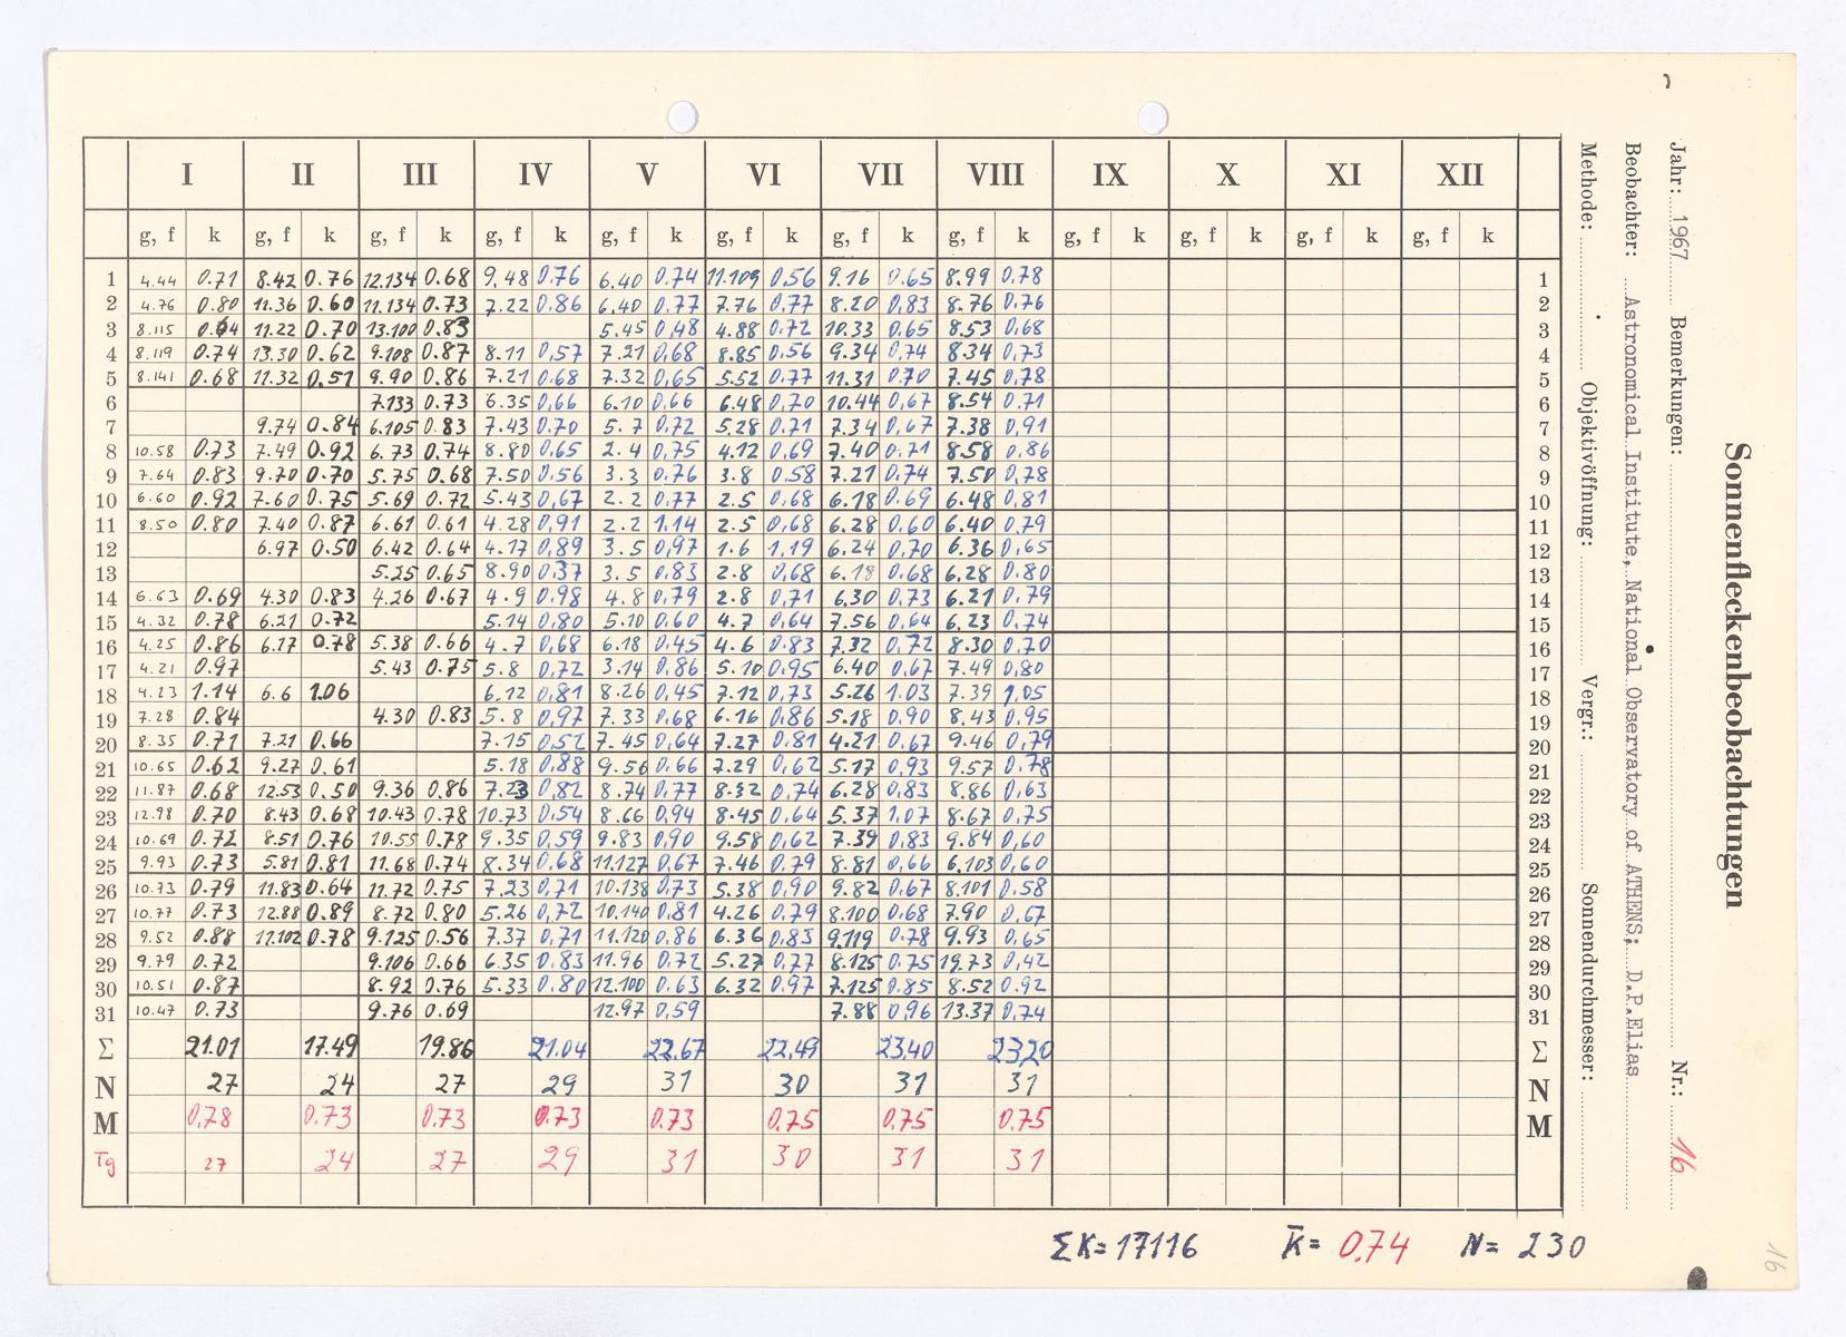 Sonnenfleckenbeobachtungen
Jahr: 1967 Bemerkungen: Nr.: 16
Beobachter: Astronomical Institute, National Observatory of ATHENS; D.P.Elias
Methode: Objektivöffnung: Vergr.: Sonnendurchmesser:
I II III IV V VI VII VIII IX X XI XII
g, f k g, f k g, f k g, f k g, f k g, f k g, f k g, f k g, f k g, f k g, f k g, f k
1 4.44 0.71 8.42 0.76 12.134 0.68 9.48 0.76 6.40 0.74 11.109 0.56 9.16 0.65 8.99 0.78 1
2 4.76 0.80 11.36 0.60 11.134 0.73 7.22 0.86 6.40 0.77 7.76 0.77 8.20 0.83 8.76 0.76 2
3 8.115 0.64 11.22 0.70 13.100 0.83 5.45 0.48 4.88 0.72 10.33 0.65 8.53 0.68 3
4 8.119 0.74 13.30 0.62 9.108 0.87 8.11 0.57 7.21 0.68 8.85 0.56 9.34 0.74 8.34 0.73 4
5 8.141 0.68 11.32 0.51 9.90 0.86 7.21 0.68 7.32 0.65 5.52 0.77 11.31 0.70 7.45 0.78 5
6 7.133 0.73 6.35 0.66 6.10 0.66 6.48 0.70 10.44 0.67 8.54 0.71 6
7 9.74 0.84 6.105 0.83 7.43 0.70 5.7 0.72 5.28 0.71 7.34 0.67 7.38 0.91 7
8 10.58 0.73 7.49 0.92 6.73 0.74 8.80 0.65 2.4 0.75 4.12 0.69 7.40 0.71 8.58 0.86 8
9 7.64 0.83 9.70 0.70 5.75 0.68 7.50 0.56 3.3 0.76 3.8 0.58 7.21 0.74 7.50 0.78 9
10 6.60 0.92 7.60 0.75 5.69 0.72 5.43 0.67 2.2 0.77 2.5 0.68 6.18 0.69 6.48 0.81 10
11 8.50 0.80 7.40 0.87 6.61 0.61 4.28 0.91 2.2 1.14 2.5 0.68 6.28 0.60 6.40 0.79 11
12 6.97 0.50 6.42 0.64 4.17 0.89 3.5 0.97 1.6 1.19 6.24 0.70 6.36 0.65 12
13 5.25 0.65 8.90 0.37 3.5 0.83 2.8 0.68 6.18 0.68 6.28 0.80 13
14 6.63 0.69 4.30 0.83 4.26 0.67 4.9 0.98 4.8 0.79 2.8 0.71 6.30 0.73 6.21 0.79 14
15 4.32 0.78 6.21 0.72 5.14 0.80 5.10 0.60 4.7 0.64 7.56 0.64 6.23 0.74 15
16 4.25 0.86 6.17 0.78 5.38 0.66 4.7 0.68 6.18 0.45 4.6 0.83 7.32 0.72 8.30 0.70 16
17 4.21 0.97 5.43 0.75 5.8 0.72 3.14 0.86 5.10 0.95 6.40 0.67 7.49 0.80 17
18 4.23 1.14 6.6 1.06 6.12 0.81 8.26 0.45 7.12 0.73 5.26 1.03 7.39 1.05 18
19 7.28 0.84 4.30 0.83 5.8 0.97 7.33 0.68 6.16 0.86 5.18 0.90 8.43 0.95 19
20 8.35 0.71 7.21 0.66 7.15 0.52 7.45 0.64 7.27 0.81 4.21 0.67 9.46 0.79 20
21 10.65 0.62 9.27 0.61 5.18 0.88 9.56 0.66 7.29 0.62 5.17 0.93 9.57 0.78 21
22 11.87 0.68 12.53 0.50 9.36 0.86 7.23 0.82 8.74 0.77 8.32 0.74 6.28 0.83 8.86 0.63 22
23 12.98 0.70 8.43 0.68 10.43 0.78 10.73 0.54 8.66 0.94 8.45 0.64 5.37 1.07 8.67 0.75 23
24 10.69 0.72 8.51 0.76 10.55 0.78 9.35 0.59 9.83 0.90 9.58 0.62 7.39 0.83 9.84 0.60 24
25 9.93 0.73 5.81 0.81 11.68 0.74 8.34 0.68 11.127 0.67 7.46 0.79 8.81 0.66 6.103 0.60 25
26 10.73 0.79 11.83 0.64 11.72 0.75 7.23 0.71 10.138 0.73 5.38 0.90 9.82 0.67 8.101 0.58 26
27 10.77 0.73 12.88 0.89 8.72 0.80 5.26 0.72 10.140 0.81 4.26 0.79 8.100 0.68 7.90 0.67 27
28 9.52 0.88 11.102 0.78 9.125 0.56 7.37 0.71 11.120 0.86 6.36 0.83 9.119 0.78 9.93 0.65 28
29 9.79 0.72 9.106 0.66 6.35 0.83 11.96 0.72 5.27 0.77 8.125 0.75 19.73 0.42 29
30 10.51 0.87 8.92 0.76 5.33 0.80 12.100 0.63 6.32 0.97 7.125 0.85 8.52 0.92 30
31 10.47 0.73 9.76 0.69 12.97 0.59 7.88 0.96 13.37 0.74 31
Σ 21.01 17.49 19.86 21.04 22.67 22.49 23.40 23.20 Σ
N 27 24 27 29 31 30 31 31 N
M 0.78 0.73 0.73 0.73 0.73 0.75 0.75 0.75 M
Tg 27 24 27 29 31 30 31 31
ΣK= 171.16 K̄= 0.74 N= 230
16